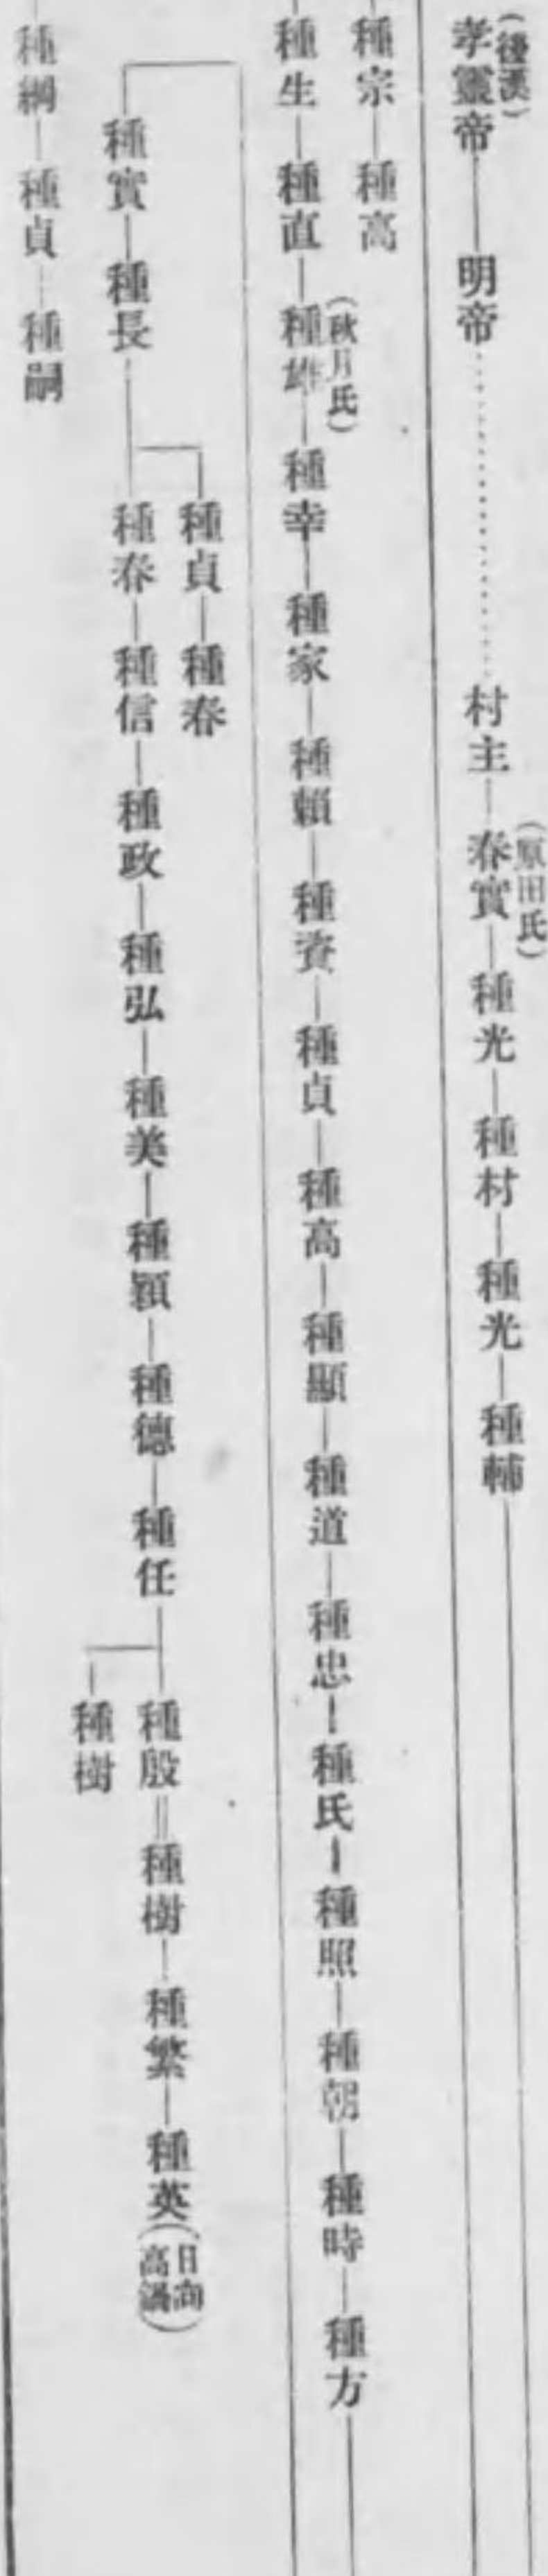 (後漢)
孝靈帝―明帝………村主―春實―種光―種村―種光―種輔
(原田氏)
種宗―種高
(秋月氏)
種生―種直―種雄―種幸―種家―種頼―種資―種貞―種高―種顯―種道―種忠―種氏―種照―種朝―種時―種方
種貞―種春
種實―種長―種春―種信―種政―種弘―種美―種穎―種德―種任―種殷=種樹―種繁―種英(日向高鍋)
種樹
種綱―種貞―種嗣